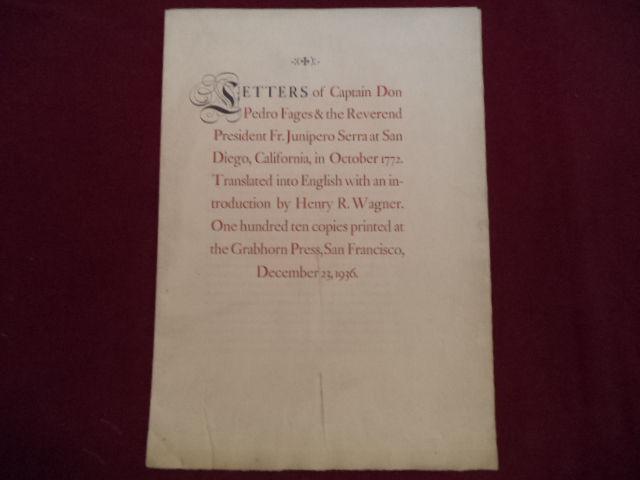 LETTERS of Captain Don
Pedro Fages & the Reverend
President Fr. Junipero Serra at San
Diego, California, in October 1772.
Translated into English with an in-
troduction by Henry R. Wagner.
One hundred ten copies printed at
the Grabhorn Press, San Francisco,
December 23, 1936.